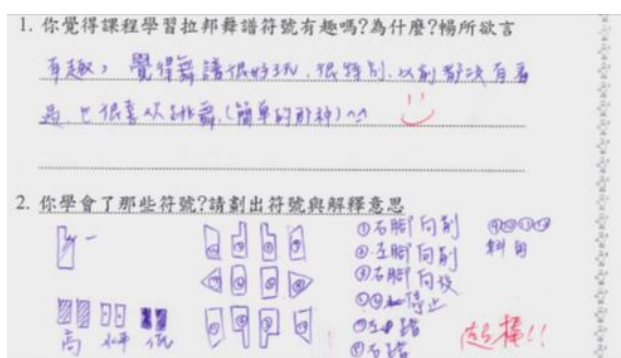 1. 你覺得課程學習拉邦舞譜符號有趣嗎?為什麼?暢所欲言
有趣，覺得舞譜很好玩，很特別，以前都沒有看
過，也很喜歡跳舞，(簡單的那種)^^
2. 你學會了那些符號?請劃出符號與解釋意思
①右腳向前
②左腳向前
③右腳向後
停止
斜角
⑥右踏
高 水平 低
超棒!!